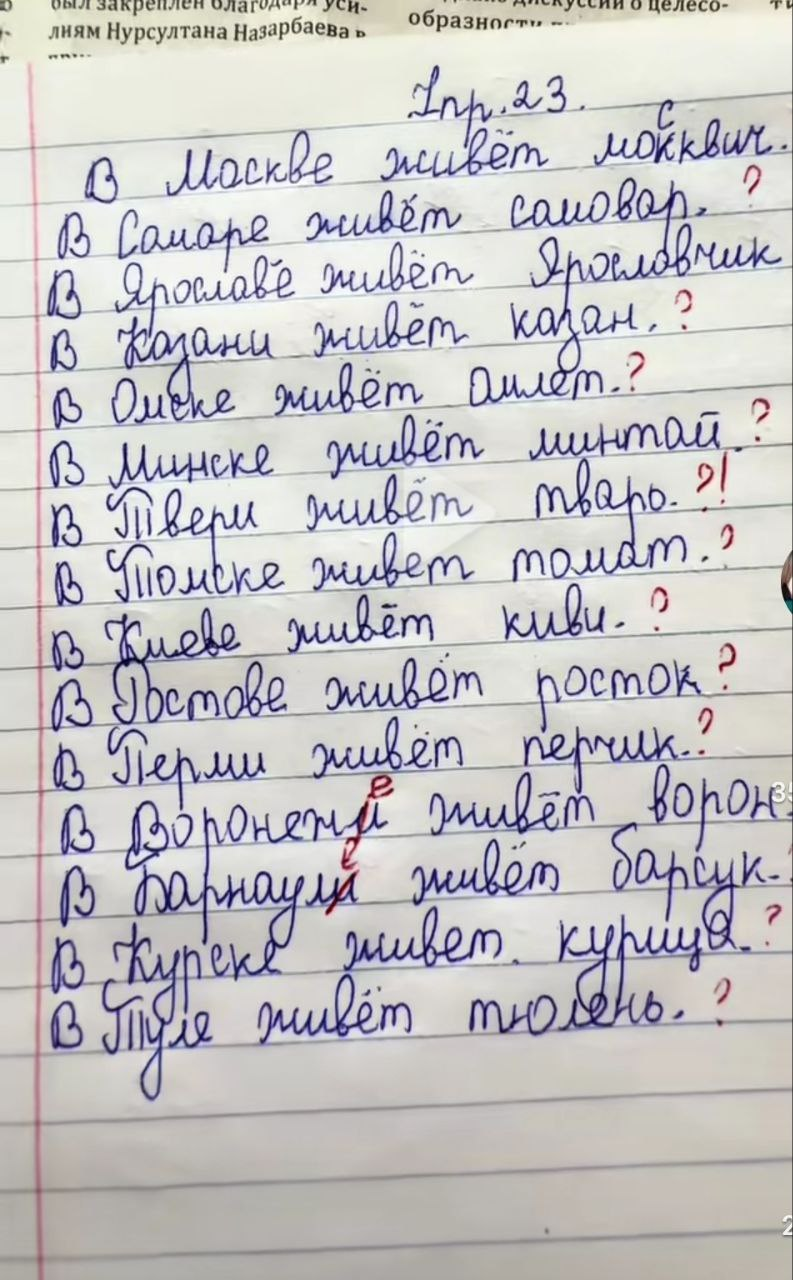 был закреплен благодаря уси-
лиям Нурсултана Назарбаева в
дискуссии о целесо-
образности
Упр. 23.
с
В Москве живёт мокквич.
В Самаре живёт самовар. ?
В Ярославе живёт Ярославчик
В Казани живёт казан. ?
В Омске живёт Омлет. ?
В Минске живёт минтай. ?
В Твери живёт тварь. ?!
В Томске живет томат. ?
В Киеве живёт киви. ?
В Ростове живёт росток ?
В Перми живёт перчик. ?
е
В Воронежи живёт ворон.
е
В Барнаули живёт барсук.
В Курске живет. курица. ?
В Туле живёт тюлень. ?